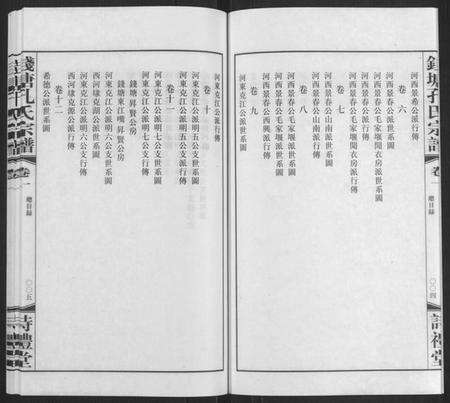 錢塘孔氏宗譜
卷一
總目錄
〇〇四
詩禮堂
河西景希公派行傳
卷六
河西景春公毛家堰開衣房派世系圖
河西景春公毛家堰開衣房派行傳
卷七
河西景春公山南派世系圖
河西景春公山南派行傳
卷八
河西景春公毛家堰派世系圖
河西景春公西興派行傳
卷九
河東克江公派世系圖
河東克江公派行傳
卷十
河東克江公派明五公支世系圖
河東克江公派明五公支行傳
卷十一
河東克江公派明七公支世系圖
河東克江公派明七公支行傳
錢塘昇賢公房
錢塘東江嘴昇公房
河東克江公派明六公支世系圖
河東克江公派明六公支行傳
西河克湖公派世系圖
西河克源公派行傳
卷十二
希德公派世系圖
錢塘孔氏宗譜
卷一
總目錄
〇〇五
詩禮堂